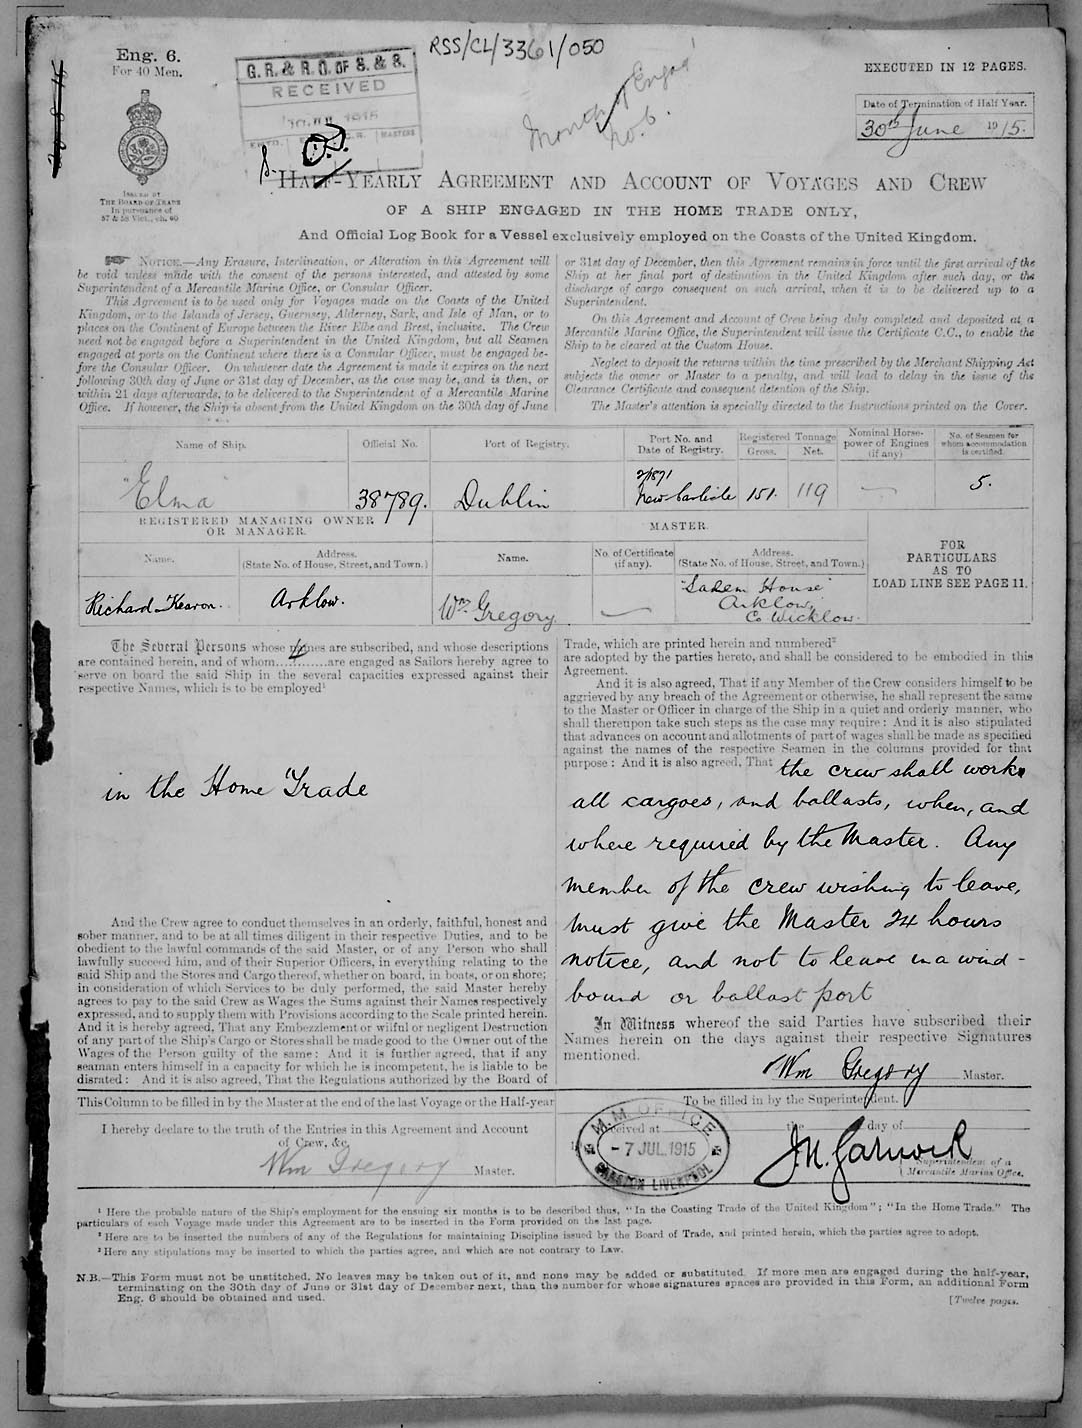 RSS/CL/3361/050
Eng. 6.
For 40 Men.
G. R. & R. O. OF S. & S.
RECEIVED
MASTERS
Month of Engag
no. 6.
EXECUTED IN 12 PAGES.
Date of Termination of Half Year.
30th June 1915.
ISSUED BY
THE BOARD OF TRADE
In pursuance of
57 & 58 Vict., ch. 60
HALF-YEARLY AGREEMENT AND ACCOUNT OF VOYAGES AND CREW
OF A SHIP ENGAGED IN THE HOME TRADE ONLY,
And Official Log Book for a Vessel exclusively employed on the Coasts of the United Kingdom.
NOTICE.—Any Erasure, Interlineation, or Alteration in this Agreement will
be void unless made with the consent of the persons interested, and attested by some
Superintendent of a Mercantile Marine Office, or Consular Officer.
This Agreement is to be used only for Voyages made on the Coasts of the United
Kingdom, or to the Islands of Jersey, Guernsey, Alderney, Sark, and Isle of Man, or to
places on the Continent of Europe between the River Elbe and Brest, inclusive. The Crew
need not be engaged before a Superintendent in the United Kingdom, but all Seamen
engaged at ports on the Continent where there is a Consular Officer, must be engaged be-
fore the Consular Officer. On whatever date the Agreement is made it expires on the next
following 30th day of June or 31st day of December, as the case may be, and is then, or
within 21 days afterwards, to be delivered to the Superintendent of a Mercantile Marine
Office. If however, the Ship is absent from the United Kingdom on the 30th day of June
or 31st day of December, then this Agreement remains in force until the first arrival of the
Ship at her final port of destination in the United Kingdom after such day, or the
discharge of cargo consequent on such arrival, when it is to be delivered up to a
Superintendent.
On this Agreement and Account of Crew being duly completed and deposited at a
Mercantile Marine Office, the Superintendent will issue the Certificate C.C., to enable the
Ship to be cleared at the Custom House.
Neglect to deposit the returns within the time prescribed by the Merchant Shipping Act
subjects the owner or Master to a penalty, and will lead to delay in the issue of the
Clearance Certificate and consequent detention of the Ship.
The Master's attention is specially directed to the Instructions printed on the Cover.
Name of Ship. Official No. Port of Registry. Port No. and Date of Registry. Registered Tonnage Gross. Net. Nominal Horse-power of Engines (if any) No. of Seamen for whom accommodation is certified.
"Elma" 38789. Dublin 2/1871 New Carlisle 151. 119 — 5.
REGISTERED MANAGING OWNER
OR MANAGER.
MASTER.
Name. Address. (State No. of House, Street, and Town.) Name. No. of Certificate (if any). Address. (State No. of House, Street, and Town.)
FOR
PARTICULARS
AS TO
LOAD LINE SEE PAGE 11.
Richard Kearon. Arklow. Wm Gregory — "Salem House" Arklow, Co Wicklow.
The Several Persons whose names are subscribed, and whose descriptions
are contained herein, and of whom....4.......are engaged as Sailors hereby agree to
serve on board the said Ship in the several capacities expressed against their
respective Names, which is to be employed¹
in the Home Trade
And the Crew agree to conduct themselves in an orderly, faithful, honest and
sober manner, and to be at all times diligent in their respective Duties, and to be
obedient to the lawful commands of the said Master, or of any Person who shall
lawfully succeed him, and of their Superior Officers, in everything relating to the
said Ship and the Stores and Cargo thereof, whether on board, in boats, or on shore;
in consideration of which Services to be duly performed, the said Master hereby
agrees to pay to the said Crew as Wages the Sums against their Names respectively
expressed, and to supply them with Provisions according to the Scale printed herein.
And it is hereby agreed, That any Embezzlement or wilful or negligent Destruction
of any part of the Ship's Cargo or Stores shall be made good to the Owner out of the
Wages of the Person guilty of the same: And it is further agreed, that if any
seaman enters himself in a capacity for which he is incompetent, he is liable to be
disrated: And it is also agreed, That the Regulations authorized by the Board of
Trade, which are printed herein and numbered²
are adopted by the parties hereto, and shall be considered to be embodied in this
Agreement.
And it is also agreed, That if any Member of the Crew considers himself to be
aggrieved by any breach of the Agreement or otherwise, he shall represent the same
to the Master or Officer in charge of the Ship in a quiet and orderly manner, who
shall thereupon take such steps as the case may require: And it is also stipulated
that advances on account and allotments of part of wages shall be made as specified
against the names of the respective Seamen in the columns provided for that
purpose: And it is also agreed, That the crew shall work
all cargoes, and ballasts, when, and
where required by the Master. Any
member of the crew wishing to leave,
must give the Master 24 hours
notice, and not to leave in a wind-
bound or ballast port
In Witness whereof the said Parties have subscribed their
Names herein on the days against their respective Signatures
mentioned.
Wm Gregory Master.
This Column to be filled in by the Master at the end of the last Voyage or the Half-year
I hereby declare to the truth of the Entries in this Agreement and Account
of Crew, &c.
Wm Gregory Master.
To be filled in by the Superintendent.
Received at the day of
M. M. OFFICE
- 7 JUL. 1915
GARSTON LIVERPOOL
Superintendent of a
Mercantile Marine Office.
¹ Here the probable nature of the Ship's employment for the ensuing six months is to be described thus, "In the Coasting Trade of the United Kingdom"; "In the Home Trade." The
particulars of each Voyage made under this Agreement are to be inserted in the Form provided on the last page.
² Here are to be inserted the numbers of any of the Regulations for maintaining Discipline issued by the Board of Trade, and printed herein, which the parties agree to adopt.
³ Here any stipulations may be inserted to which the parties agree, and which are not contrary to Law.
N.B.—This Form must not be unstitched. No leaves may be taken out of it, and none may be added or substituted. If more men are engaged during the half-year,
terminating on the 30th day of June or 31st day of December next, than the number for whose signatures spaces are provided in this Form, an additional Form
Eng. 6 should be obtained and used.
[Twelve pages.